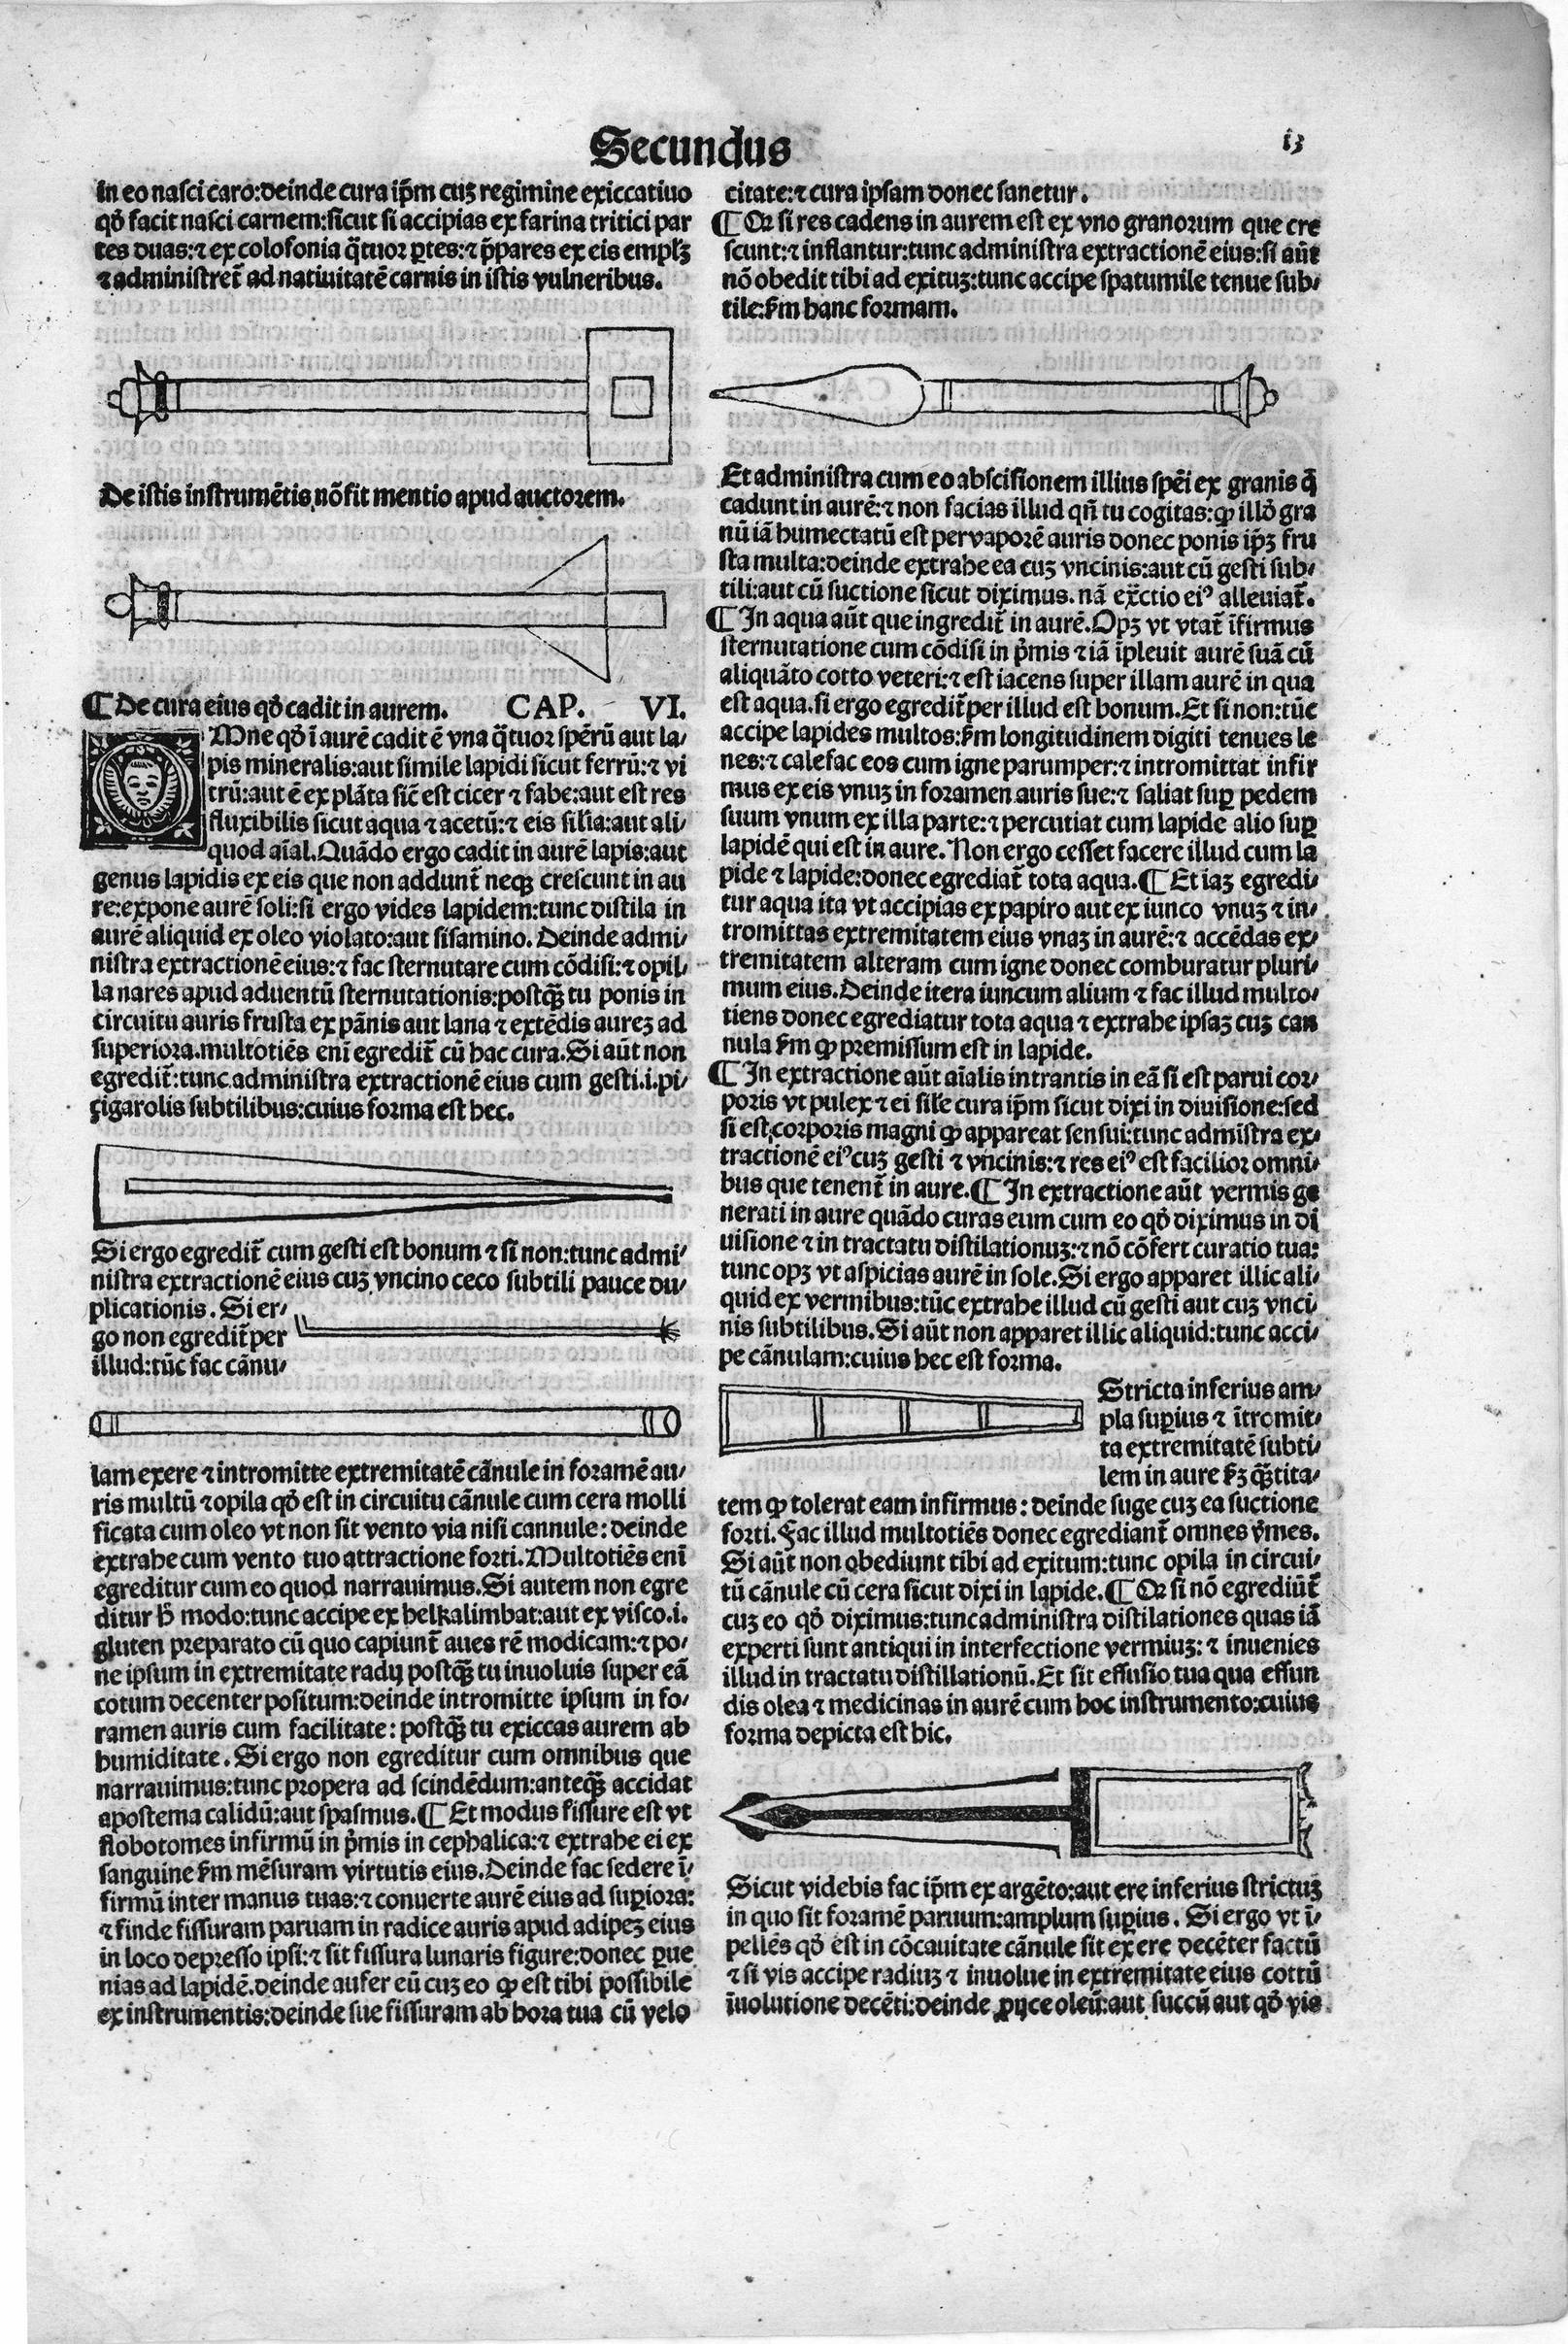 Secundus
13
in eo nasci caro:deinde cura ip̄m cuꝫ regimine exiccatiuo
qđ facit nasci carnem:sicut si accipias ex farina tritici par
tes duas:⁊ ex colofonia q̄tuor ꝑtes:⁊ p̄pares ex eis emplꝫ
⁊ administret̄ ad natiuitatē carnis in istis vulneribus.
De istis instrumētis nō fit mentio apud auctorem.
¶ De cura eius qđ cadit in aurem. CAP. VI.
OMne qđ ī aurē cadit ē vna q̄tuor spērū aut la⸗
pis mineralis:aut simile lapidi sicut ferrū:⁊ vi
trū:aut ē ex plāta sic̄ est cicer ⁊ fabe:aut est res
fluxibilis sicut aqua ⁊ acetū:⁊ eis silia:aut ali⸗
quod aīal.Quādo ergo cadit in aurē lapis:aut
genus lapidis ex eis que non addunt̄ neqꝫ crescunt in au
re:expone aurē soli:si ergo vides lapidem:tunc distila in
aurē aliquid ex oleo violato:aut sisamino. Deinde admi⸗
nistra extractionē eius:⁊ fac sternutare cum cōdisi:⁊ opil⸗
la nares apud aduentū sternutationis:postq̄ꝫ tu ponis in
circuitu auris frusta ex pānis aut lana ⁊ extēdis aureꝫ ad
superiora.multotiēs enī egredit̄ cū hac cura.Si aūt non
egredit̄:tunc administra extractionē eius cum gesti.i.pi⸗
çigarolis subtilibus:cuius forma est hec.
Si ergo egredit̄ cum gesti est bonum ⁊ si non:tunc admi⸗
nistra extractionē eius cuꝫ vncino ceco subtili pauce du⸗
plicationis. Si er⸗
go non egredit̄ per
illud:tūc fac cānu⸗
lam ex ere ⁊ intromitte extremitatē cānule in foramē au⸗
ris multū ⁊ opila qđ est in circuitu cānule cum cera molli
ficata cum oleo vt non sit vento via nisi cannule: deinde
extrahe cum vento tuo attractione forti.Multotiēs enī
egreditur cum eo quod narrauimus.Si autem non egre
ditur h̄ modo:tunc accipe ex helkalimbat:aut ex visco.i.
gluten preparato cū quo capiunt̄ aues rē modicam:⁊ po⸗
ne ipsum in extremitate radij postq̄ꝫ tu inuoluis super eā
cotum decenter positum:deinde intromitte ipsum in fo⸗
ramen auris cum facilitate: postq̄ꝫ tu exiccas aurem ab
humiditate. Si ergo non egreditur cum omnibus que
narrauimus:tunc propera ad scindēdum:anteq̄ꝫ accidat
apostema calidū:aut spasmus.¶ Et modus fissure est vt
flobotomes infirmū in p̄mis in cephalica:⁊ extrahe ei ex
sanguine s̄m mēsuram virtutis eius.Deinde fac sedere ī⸗
firmū inter manus tuas:⁊ conuerte aurē eius ad suꝑiora:
⁊ finde fissuram paruam in radice auris apud adipeꝫ eius
in loco depresso ipsi:⁊ sit fissura lunaris figure:donec ꝑue
nias ad lapidē.deinde aufer eū cuꝫ eo ꝙ est tibi possibile
ex instrumentis:deinde sue fissuram ab hora tua cū velo
citate:⁊ cura ipsam donec sanetur.
¶ Or si res cadens in aurem est ex vno granorum que cre
scunt:⁊ inflantur:tunc administra extractionē eius:si aūt
nō obedit tibi ad exituꝫ:tunc accipe spatumile tenue sub⸗
tile:s̄m hanc formam.
Et administra cum eo abscisionem illius spēi ex granis q̄
cadunt in aurē:⁊ non facias illud qn̄ tu cogitas:ꝙ illđ gra
nū iā humectatū est per vaporē auris donec ponis ip̄ꝫ fru
sta multa:deinde extrahe ea cuꝫ vncinis:aut cū gesti sub⸗
tili:aut cū suctione sicut diximus. nā ex̄ctio eiꝰ alleuiat̄.
¶ In aqua aūt que ingredit̄ in aurē.Opꝫ vt vtat̄ īfirmus
sternutatione cum cōdisi in p̄mis ⁊ iā īpleuit aurē suā cū
aliquāto cotto veteri:⁊ est iacens super illam aurē in qua
est aqua.si ergo egredit̄ per illud est bonum.Et si non:tūc
accipe lapides multos:s̄m longitudinem digiti tenues le
nes:⁊ calefac eos cum igne parumper:⁊ intromittat infir
mus ex eis vnuꝫ in foramen auris sue:⁊ saliat suꝑ pedem
suum vnum ex illa parte:⁊ percutiat cum lapide alio suꝑ
lapidē qui est in aure.Non ergo cesset facere illud cum la
pide ⁊ lapide:donec egrediat̄ tota aqua.¶ Et iaꝫ egredi⸗
tur aqua ita vt accipias ex papiro aut ex iunco vnuꝫ ⁊ in⸗
tromittas extremitatem eius vnaꝫ in aurē:⁊ accēdas ex⸗
tremitatem alteram cum igne donec comburatur pluri⸗
mum eius.Deinde itera iuncum alium ⁊ fac illud multo⸗
tiens donec egrediatur tota aqua ⁊ extrahe ipsaꝫ cuꝫ can
nula s̄m ꝙ premissum est in lapide.
¶ In extractione aūt aīalis intrantis in eā si est parui cor⸗
poris vt pulex ⁊ ei sile cura ip̄m sicut dixi in diuisione:sed
si est corporis magni ꝙ appareat sensui:tunc admistra ex⸗
tractionē eiꝰ cuꝫ gesti ⁊ vncinis:⁊ res eiꝰ est facilior omni⸗
bus que tenent̄ in aure.¶ In extractione aūt vermis ge
nerati in aure quādo curas eum cum eo qđ diximus in di
uisione ⁊ in tractatu distilationuꝫ:⁊ nō cōfert curatio tua:
tunc opꝫ vt aspicias aurē in sole.Si ergo apparet illic ali⸗
quid ex vermibus:tūc extrahe illud cū gesti aut cuꝫ vnci⸗
nis subtilibus.Si aūt non apparet illic aliquid:tunc acci⸗
pe cānulam:cuius hec est forma.
Stricta inferius am⸗
pla suꝑius ⁊ ītromit⸗
ta extremitatē subti⸗
lem in aure s̄ꝫ q̄ꝫtita⸗
tem ꝙ tolerat eam infirmus: deinde suge cuꝫ ea suctione
forti.Fac illud multotiēs donec egrediant̄ omnes v̄mes.
Si aūt non obediunt tibi ad exitum:tunc opila in circui⸗
tū cānule cū cera sicut dixi in lapide.¶ Or si nō egrediūt̄
cuꝫ eo qđ diximus:tunc administra distilationes quas iā
experti sunt antiqui in interfectione vermiuꝫ: ⁊ inuenies
illud in tractatu distillationū.Et sit effusio tua qua effun
dis olea ⁊ medicinas in aurē cum hoc instrumento:cuius
forma depicta est hic.
Sicut videbis fac ip̄m ex argēto:aut ere inferius strictuꝫ
in quo sit foramē paruum:amplum suꝑius. Si ergo vt ī⸗
pellēs qđ est in cōcauitate cānule sit ex ere decēter factū
⁊ si vis accipe radiuꝫ ⁊ inuolue in extremitate eius cottū
īuolutione decēti:deinde ꝓijce oleū:aut succū aut qđ vis